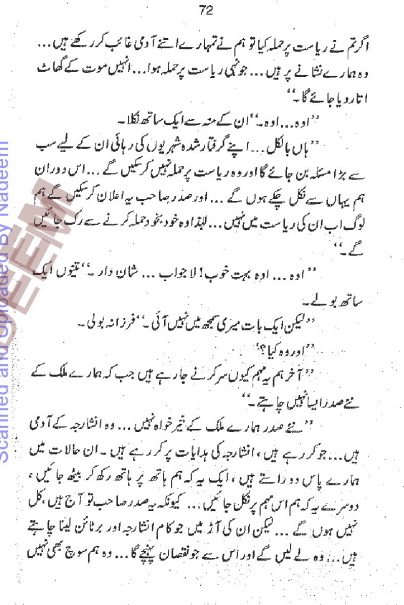 72
اگر تم نے ریاست پر حملہ کیا تو ہم نے تمہارے اتنے آدمی غائب کر رکھے ہیں ...
وہ ہمارے نشانے پر ہیں ... جونہی ریاست پر حملہ ہوا ... انہیں موت کے گھاٹ
اتار دیا جائے گا۔‘‘
’’اوہ ... اوہ۔‘‘ ان کے منہ سے ایک ساتھ نکلا۔
’’ہاں بالکل ... اپنے گرفتار شدہ شہریوں کی رہائی ان کے لیے سب
سے بڑا مسئلہ بن جائے گا اور وہ ریاست پر حملہ نہیں کر سکیں گے ... اس دوران
ہم یہاں سے نکل چکے ہوں گے ... اور صدر صاحب یہ اعلان کر سکیں گے ہم
لوگ اب ان کی ریاست میں نہیں ... لہٰذا وہ خود بخود حملہ کرنے سے رک جائیں
گے۔‘‘
’’اوہ ... اوہ بہت خوب! لاجواب ... شان دار۔‘‘ تینوں ایک
ساتھ بولے۔
’’لیکن ایک بات میری سمجھ میں نہیں آئی۔‘‘ فرزانہ بولی۔
’’اور وہ کیا؟‘‘
’’آخر ہم یہ مہم کیوں سر کرنے جا رہے ہیں جب کہ ہمارے ملک کے
نئے صدر ایسا نہیں چاہتے۔‘‘
’’نئے صدر ہمارے ملک کے خیر خواہ نہیں ... وہ انشارجہ کے آدمی
ہیں ... جو کر رہے ہیں، انشارجہ کی ہدایات پر کر رہے ہیں۔ ان حالات میں
ہمارے پاس دو راستے ہیں، ایک یہ کہ ہم ہاتھ پر ہاتھ رکھ کر بیٹھ جائیں،
دوسرے یہ کہ ہم اس مہم پر نکل جائیں ... کیونکہ یہ صدر صاحب تو آج ہیں، کل
نہیں ہوں گے ... لیکن ان کی آڑ میں جو کام انشارجہ اور برٹائن لینا چاہتے
ہیں ... وہ لے لیں گے اور اس سے جو نقصان پہنچے گا ... وہ ہم سوچ بھی نہیں
Scanned and Uploaded By Nadeem
NADEEM